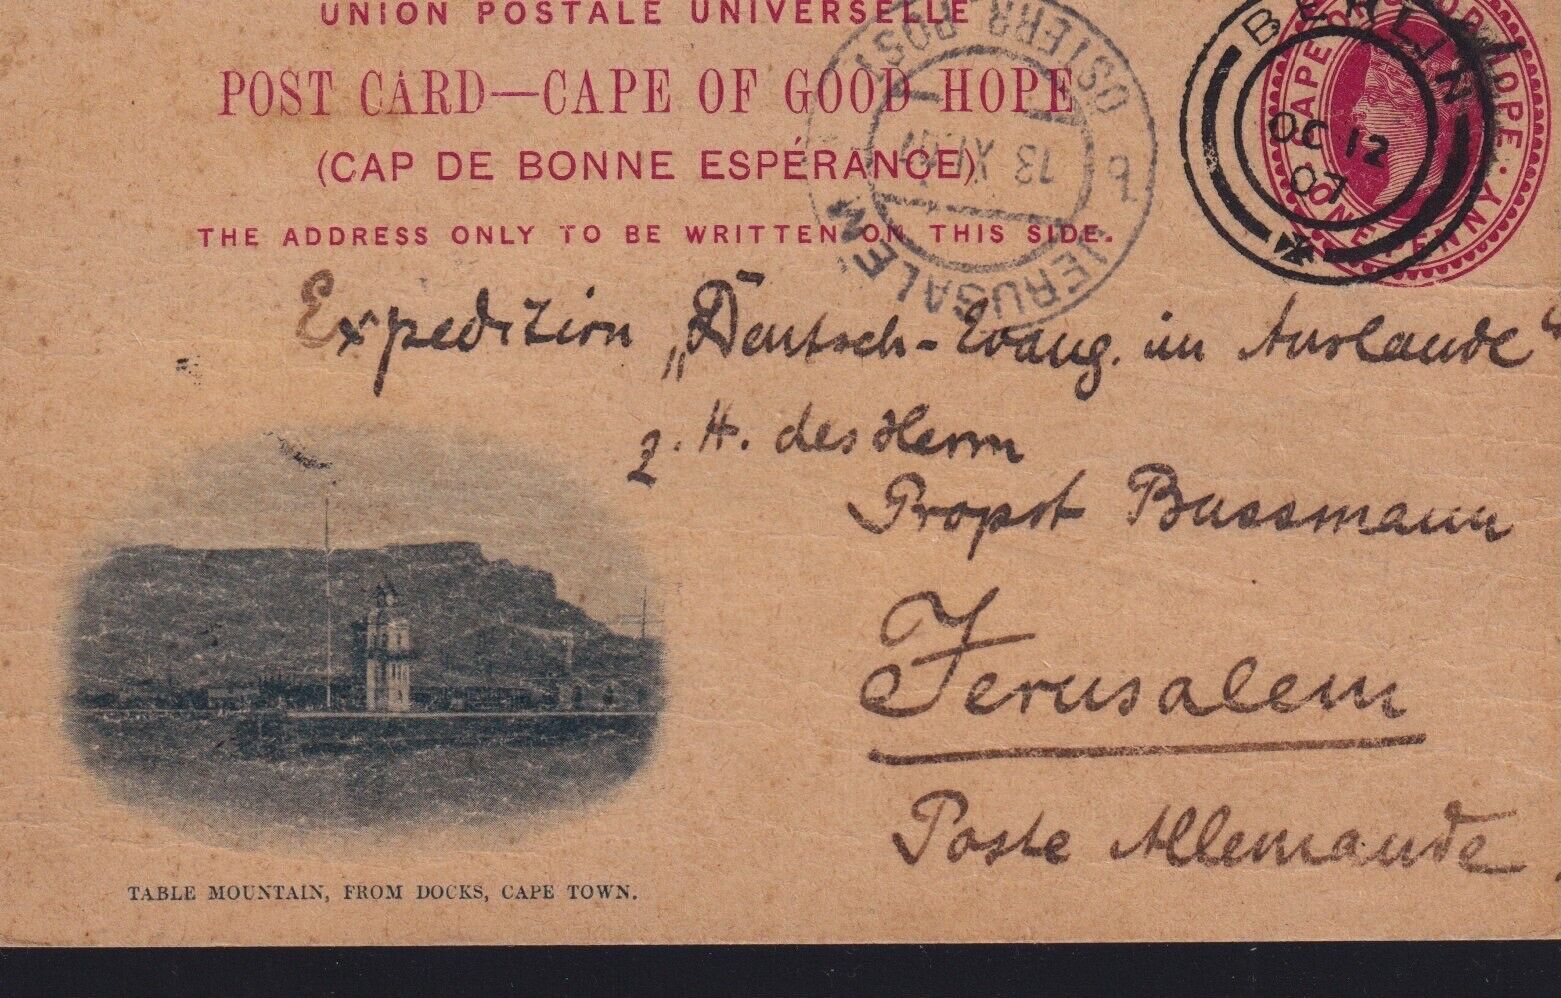 UNION POSTALE UNIVERSELLE
POST CARD—CAPE OF GOOD HOPE
(CAP DE BONNE ESPÉRANCE)
THE ADDRESS ONLY TO BE WRITTEN ON THIS SIDE.
JERUSALEM
13 XI 07
b
BERLIN
OC 12
07
CAPE OF GOOD HOPE.
ONE PENNY.
Expedition „Deutsch-Evang. im Auslande“
z. H. des Herrn
Propst Bussmann
Jerusalem
Poste Allemande
TABLE MOUNTAIN, FROM DOCKS, CAPE TOWN.